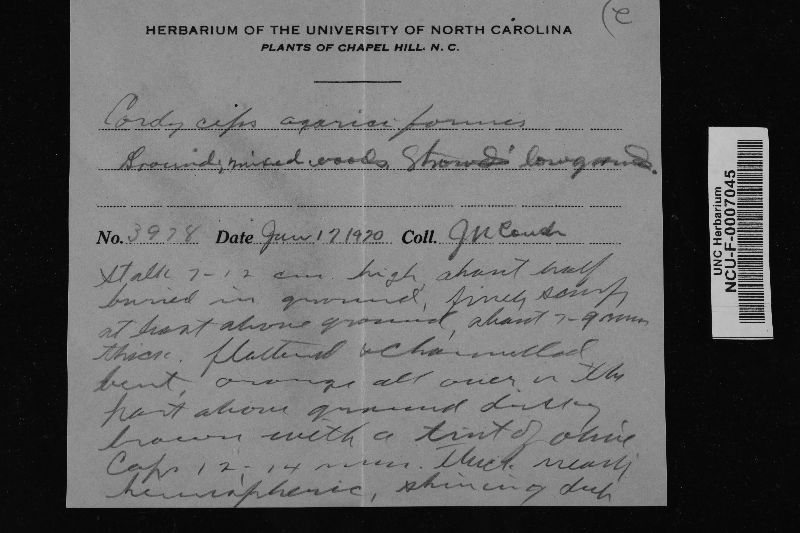 (c
HERBARIUM OF THE UNIVERSITY OF NORTH CAROLINA
PLANTS OF CHAPEL HILL, N. C.
Cordyceps agariciformis
Ground, mixed woods, Strowd's lowgrounds.
No. 3978 Date Jan 17 1920 Coll. JN Couch
Stalk 7-12 cm. high, about half
buried in ground, finely scurfy
at least above ground, about 7-9 mm
thick. flattened & channelled
bent, orange all over or the
part above ground dusky
brown with a tint of olive
Caps 12-14 mm. thick nearly
hemispheric, shining deep
UNC Herbarium
NCU-F-0007045